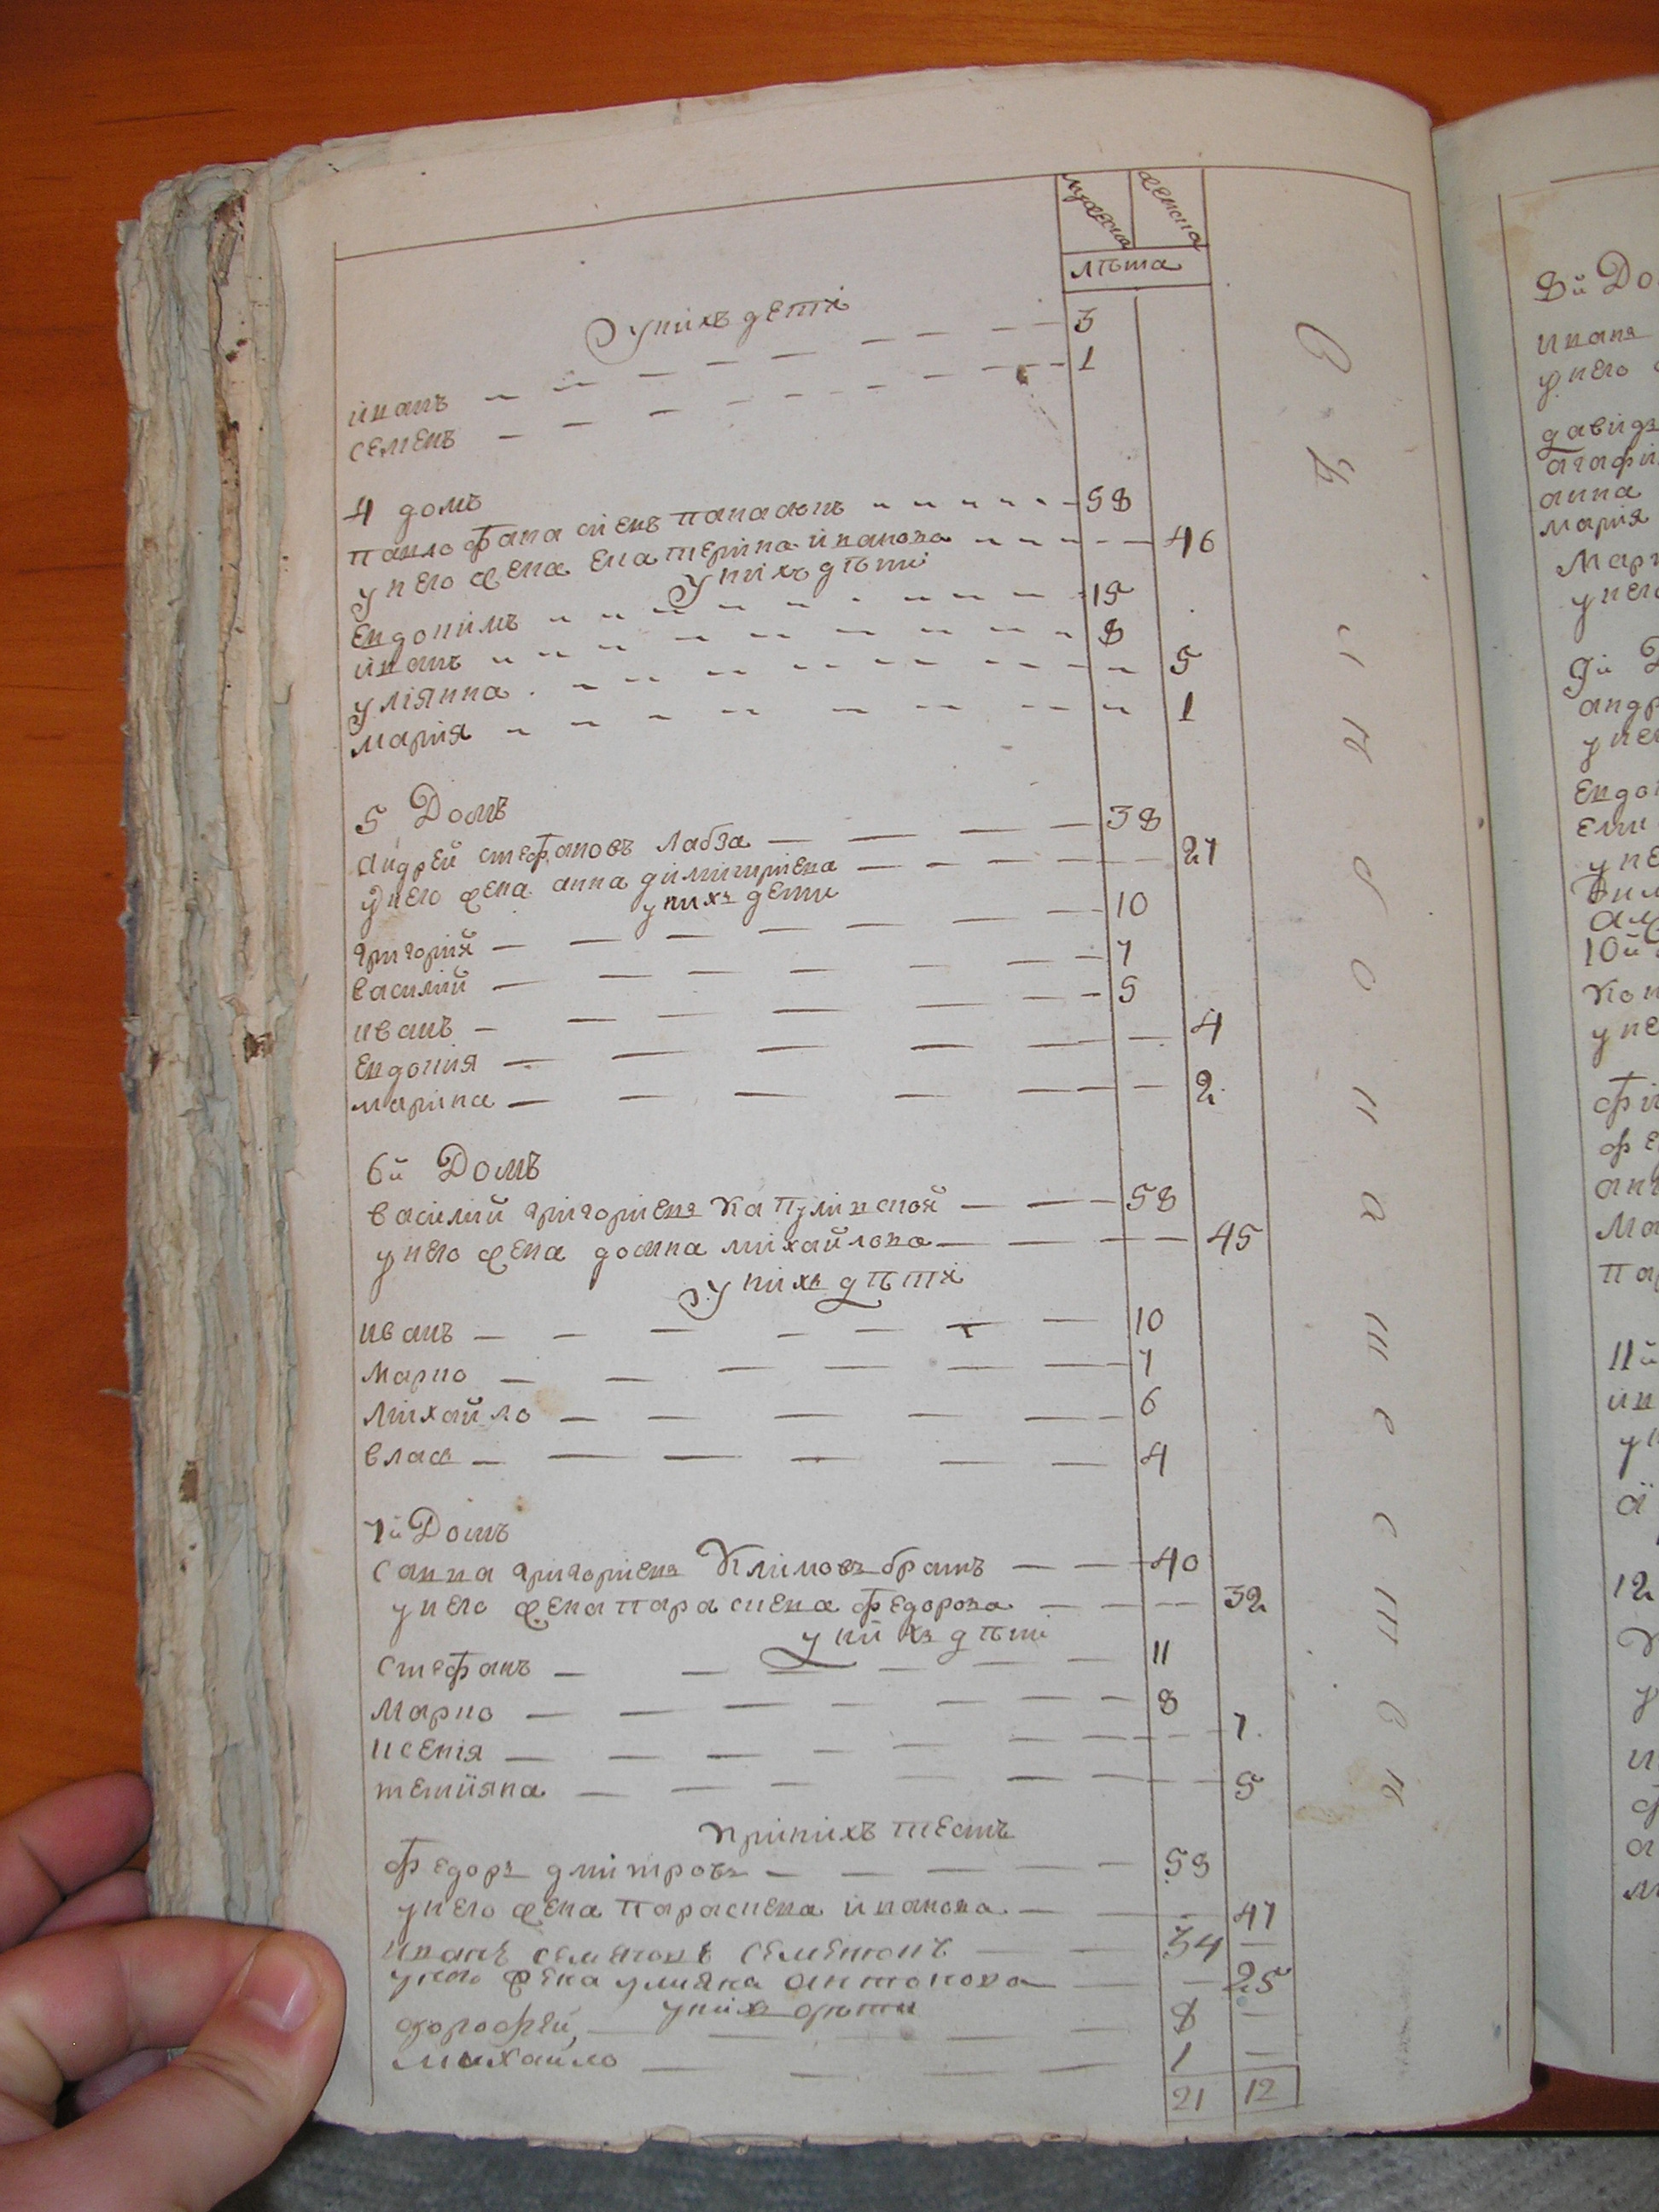 мужеска женска
лѣта
У нихъ дети
иванъ 3
семенъ 1
4 домъ
павло фанасіевъ панасюкъ 58
у него жена екатерина иванова 46
у нихъ дѣти
евдокимъ 15
иванъ 8
улиянна 5
марія 1
5 Домъ
андрей стефановъ лабза 38
у него жена анна димитриева 27
у нихъ дети
григорій 10
василий 7
иванъ 5
евдокия 4
марина 2
6й Домъ
василий григориевъ капулинской 58
у него жена домна михайлова 45
у нихъ дѣти
иванъ 10
марко 7
михайло 6
влас 4
7й Домъ
савка григориевъ климовъ братъ 40
у него жена параскева федорова 32
у нихъ дѣти
стефанъ 11
марко 8
ксенія 7
тетияна 5
при нихъ тестъ
федоръ дмитровъ 58
у него жена параскева иванова 47
иванъ семеновъ 34
у него жена улияна антонова 25
у нихъ дѣти
дорофей 8
михайло 1
21 12
8й До
иваня
у него
давидъ
агафи
анна
марія
мар
у него
9й Д
андр
у нег
евдо
10й
у не
11й
12